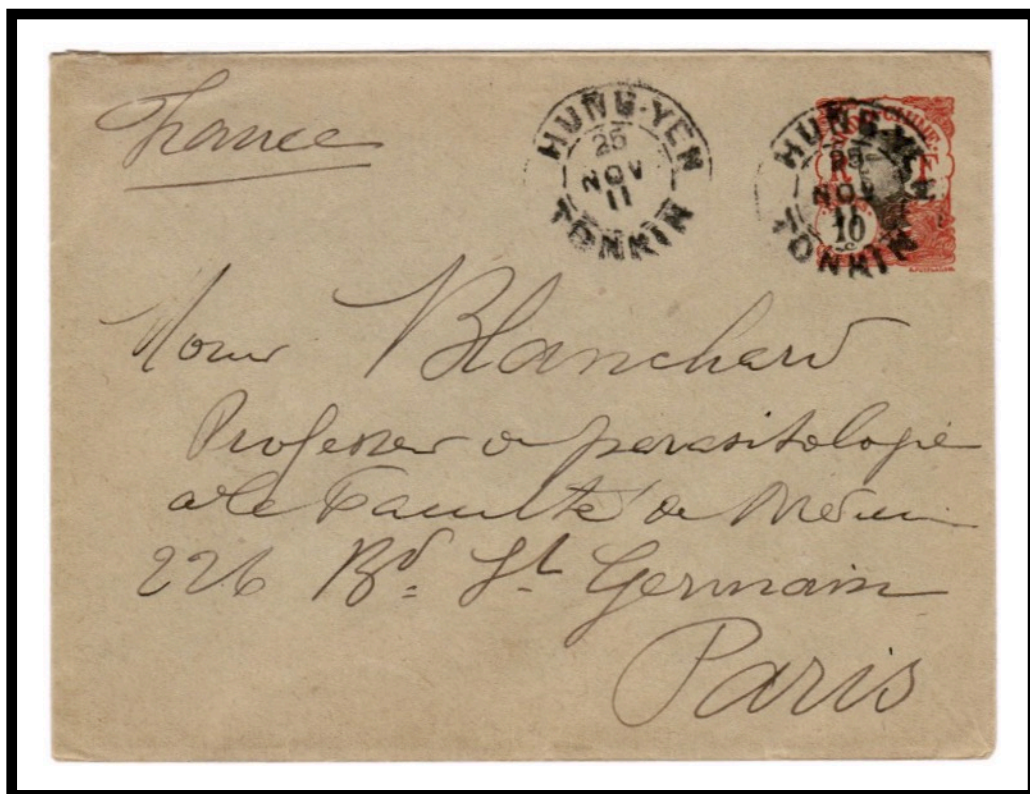 France
HUNG-YEN
25
NOV
11
TONKIN
HUNG-YEN
25
NOV
11
TONKIN
10
Blanchard
Professeur de parasitologie
à la Faculté de Médecine
226 Bd St Germain
Paris